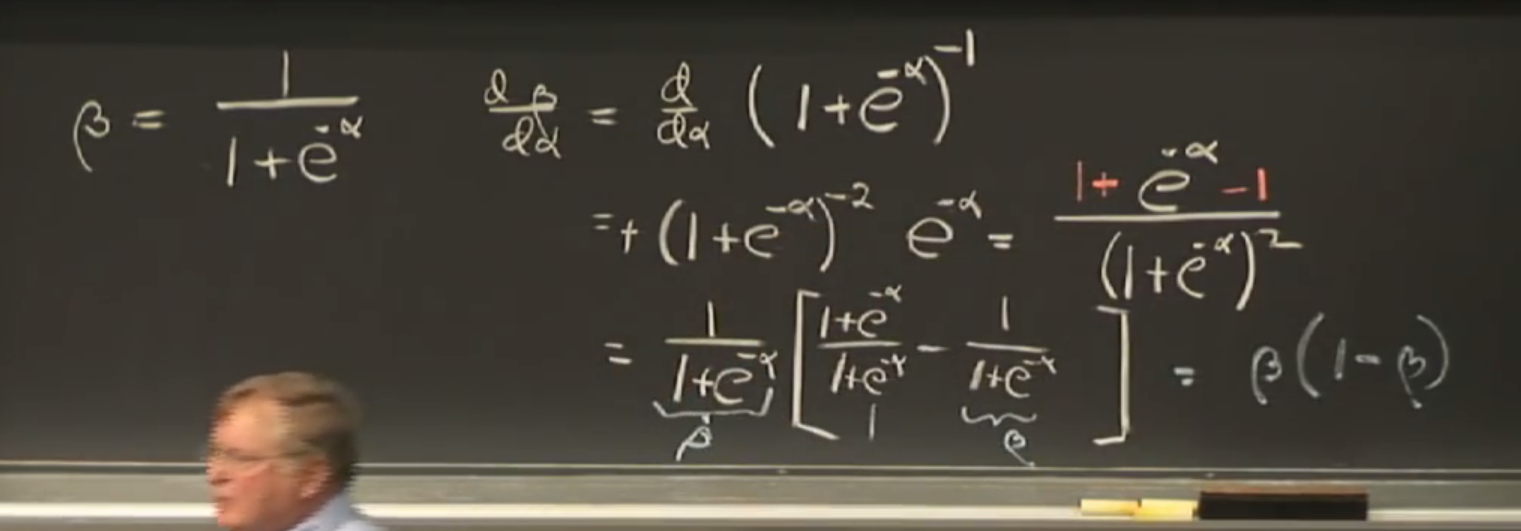 β = 1/(1+e^-α)   dβ/dα = d/dα (1+e^-α)^-1
=+ (1+e^-α)^-2 e^-α = (1+e^-α-1)/(1+e^-α)^2
= 1/(1+e^-α) [ (1+e^-α)/(1+e^-α) - 1/(1+e^-α) ] = β(1-β)
β   1   β